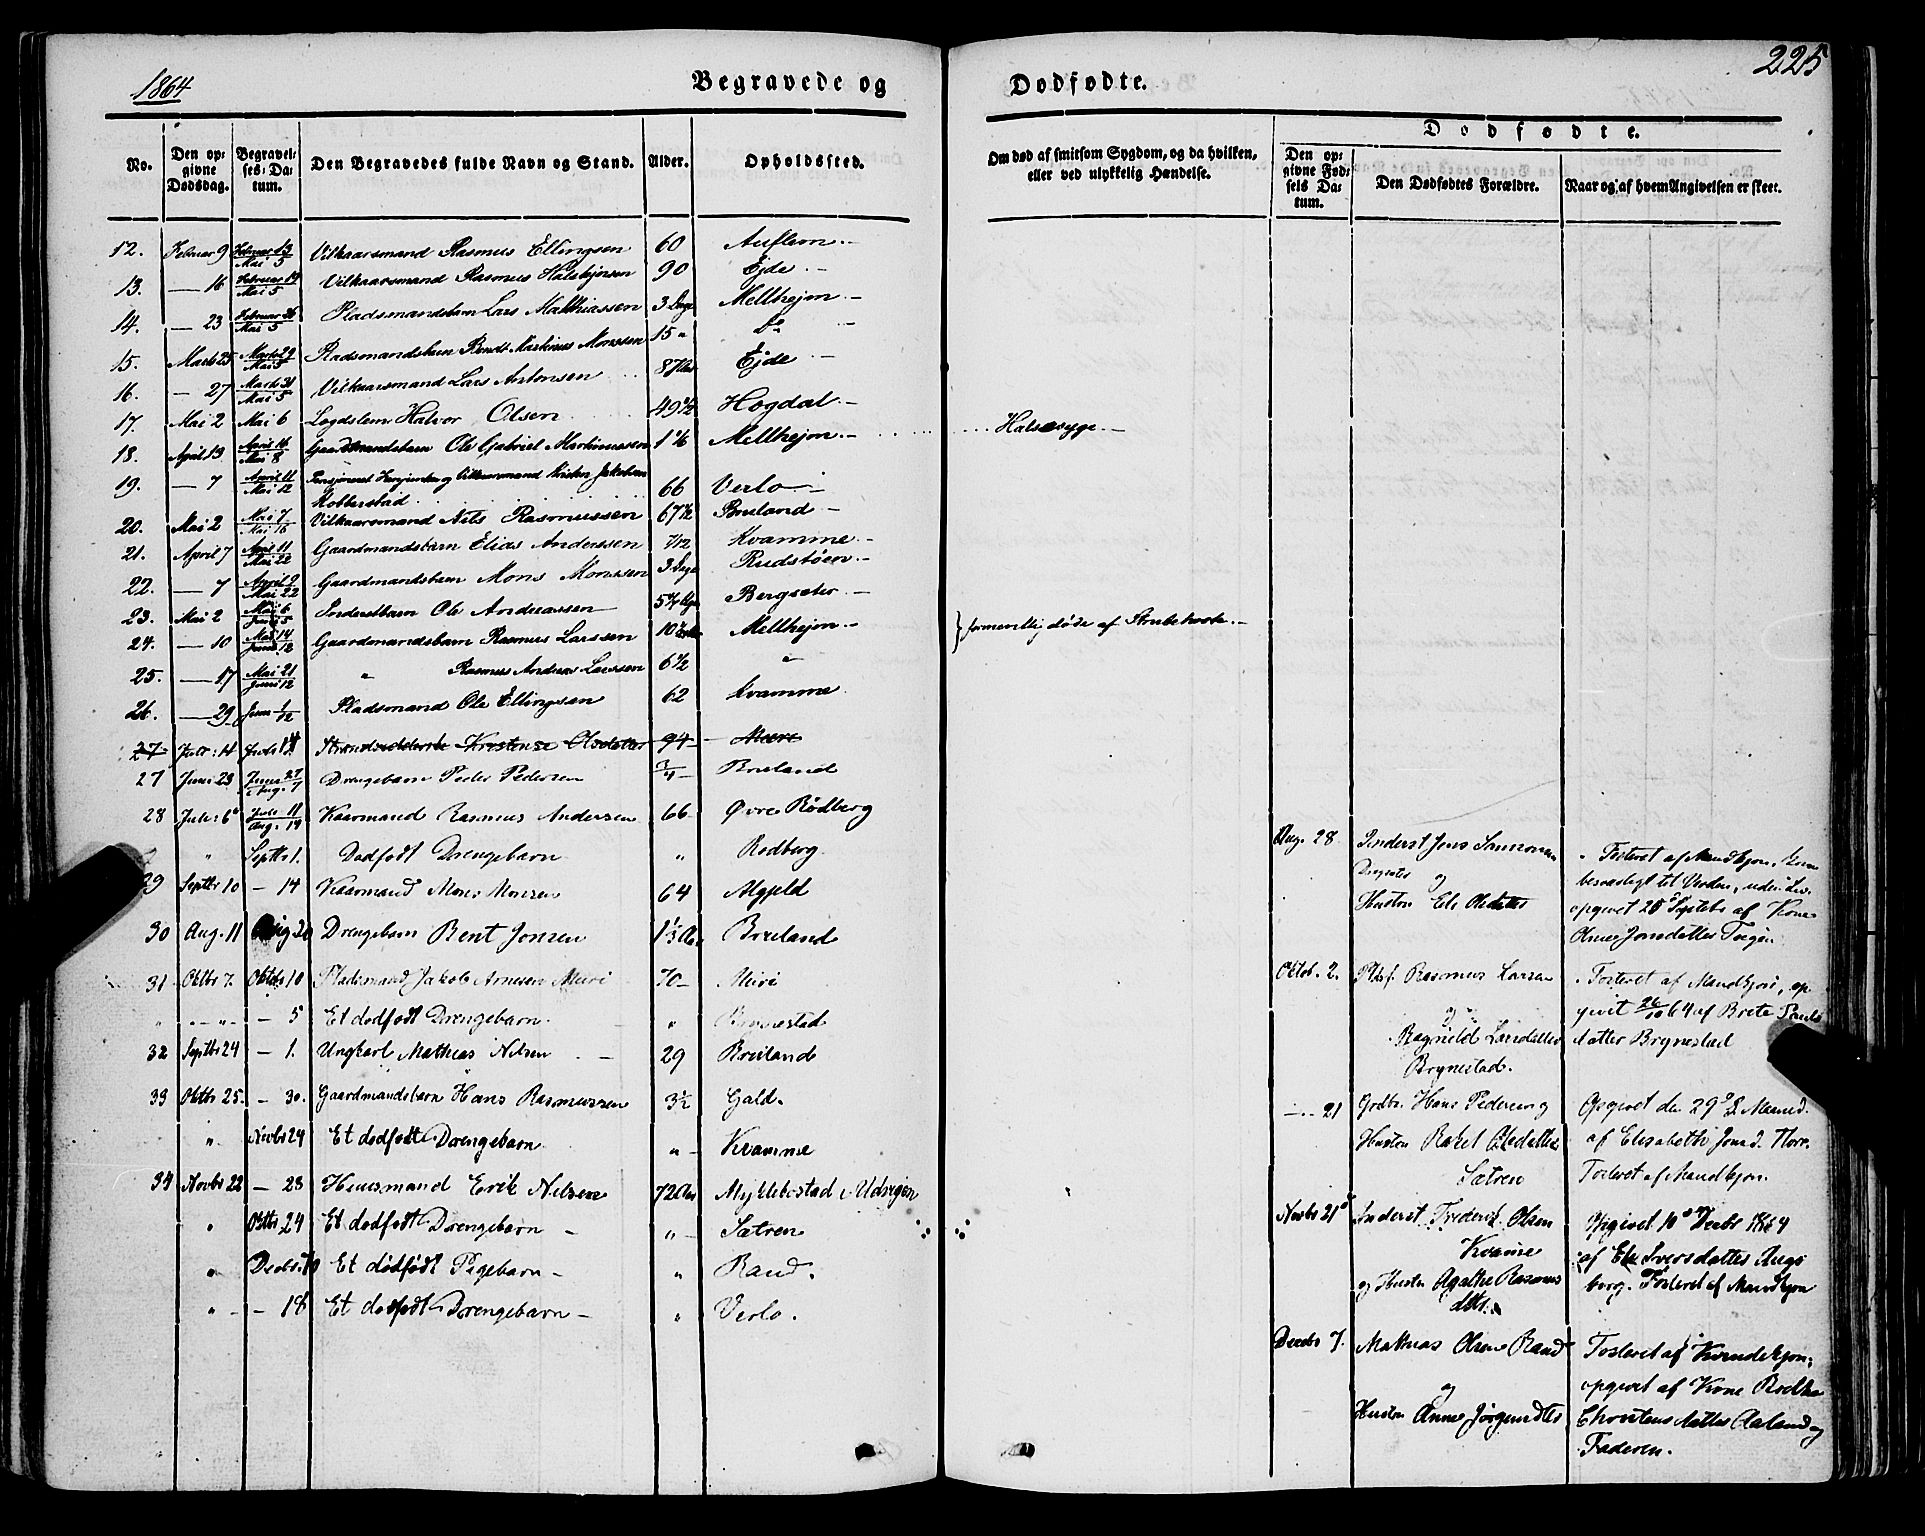 1864
Begravede og
Dødfødte.
225
No.
Den opgivne Dødsdag.
Begravelses-Datum.
Den Begravedes fulde Navn og Stand.
Alder.
Opholdssted.
Om død af smitsom Sygdom, og da hvilken, eller ved ulykkelig Hændelse.
Dødfødte.
Den opgivne Fødsels Datum.
Den Dødfødtes Forældre.
Naar og af hvem Angivelsen er skeet.
12. Februar 9 Februar 13 Mai 5 Vilkaarsmand Rasmus Ellingsen 60 Auflem.
13. — 16 Februar 19 Mai 5 Vilkaarsmand Rasmus 90 Ejde.
14. — 23 Februar 26 Mai 5 Pladsmandsbarn Lars Matthiassen 3 Dage Mellhejen
15. Marts 25 Marts 29 Mai 5 Pladsmandsbarn Bendt Martinus Monssen 15 " Do
16. — 27 Marts 31 Mai 5 Vilkaarsmand Lars Antonsen 87 Ejde
17. Mai 2 Mai 6 Logdslem Halvor Olsen 49 1/2 Hogdal
18. April 13 April 16 Mai 8 Gaardmandsbarn Ole Gabriel Martinussen 1 1/6 Mellhejen Halssyge
19. — 7 April 11 Mai 12 og Vilkaarsmand Kristen Jakobsen
Robberstad 66 Verlo
20. Mai 2 Mai 7 Mai 16 Vilkaarsmand Nils Rasmussen 67 1/2 Breland
21. April 7 April 11 Mai 22 Gaardmandsbarn Elias Anderssen 7/12 Kvamme
22. — 7 April 9 Mai 22 Gaardmandsbarn Mons Monssen 3 Dage Rudstøen
23. Mai 2 Mai 6 Juni 5 Inderstbarn Ole Anderassen Bergsæter
24. — 10 Mai 14 Juni 12 Gaardmandsbarn Rasmus Larssen Mellhejen formentlig døde af Strubehoste.
25. — 17 Mai 21 Juni 12 " Rasmus Andreas Larssen 6 1/2 "
26. — 29 Juni 1/12 Pladsmand Ole Ellingsen 62 Kvamme
27 Juli 11 Juli 14 Kristense Olsdatter 94 Meire
27 Juni 23 Juni 27 Aug. 7 Drengebarn Peder Pedersen 3/4 Breland
28 Juli 6 Juli 11 Aug. 14 Kaarmand Rasmus Andersen 66 Øvre Rødberg
" Septbr 1. Dødfødt Drengebarn " Rødberg
29 Septbr 10 — 14 Kaarmand Mons Monsen 64 Algjeld
30 Aug. 11 Aug 20 Drengebarn Bent Jonsen 1 1/3 Breland
31 Oktbr 7. Oktbr 10 Pladsmand Jakob Arnesen Meiri 70 Meiri
" — 5 Et dødfødt Drengebarn " Brynestad
32 Septbr 24 — 1. Ungkarl Mathias Nilsen 29 Breiland
33 Oktbr 25. — 30. Gaardmandsbarn Hans Rasmussen 3 1/2 Gald.
" Novbr 24 Et dødfødt Drengebarn " Kvamme
34 Novbr 22 — 23 Huusmand Erik Nilsen 72 Aar Myklebostad Udvigen
" Oktbr 24 Et dødfødt Drengebarn " Sætren
" Decbr. 10 Et dødfødt Pigebarn " Rand.
" — 18 Et dødfødt Drengebarn " Verlo.
Aug. 28 Inderst Jens
og
Hustru Eli Olsdatter
Fosteret af Mandkjøn, kom
til Verden, uden Liv.
opgivet 25 Septbr af Kone
Jonsdatter
Oktob. 2. Pldsf. Rasmus Larsen
og
Ragnild Larsdatter
Brynestad.
Fosteret af Mandkjøn, op-
givet 26/10 64 af Brite Pauls
datter Brynestad
— 21 Hans Pedersen og
Hustru Rakel Olsdatter
Sætren
Opgivet den 29 d. Maaned.
af Elisabeth Jonsd.
Fosteret af Mandkjøn.
Novbr 21 Inderst Frederik Olsen
Kvamme
og Hustru Agathe Rasmus
dtr.
Opgivet 10 Decbr 1864
af Sversdatter
Fosteret af Mandkjøn
Decbr 7. Mathias Olsen Rand
og
Hustru Anne Jørgensdtr
Fosteret af Kvindekjøn,
opgivet af Kone
datter Aaland og
Faderen.